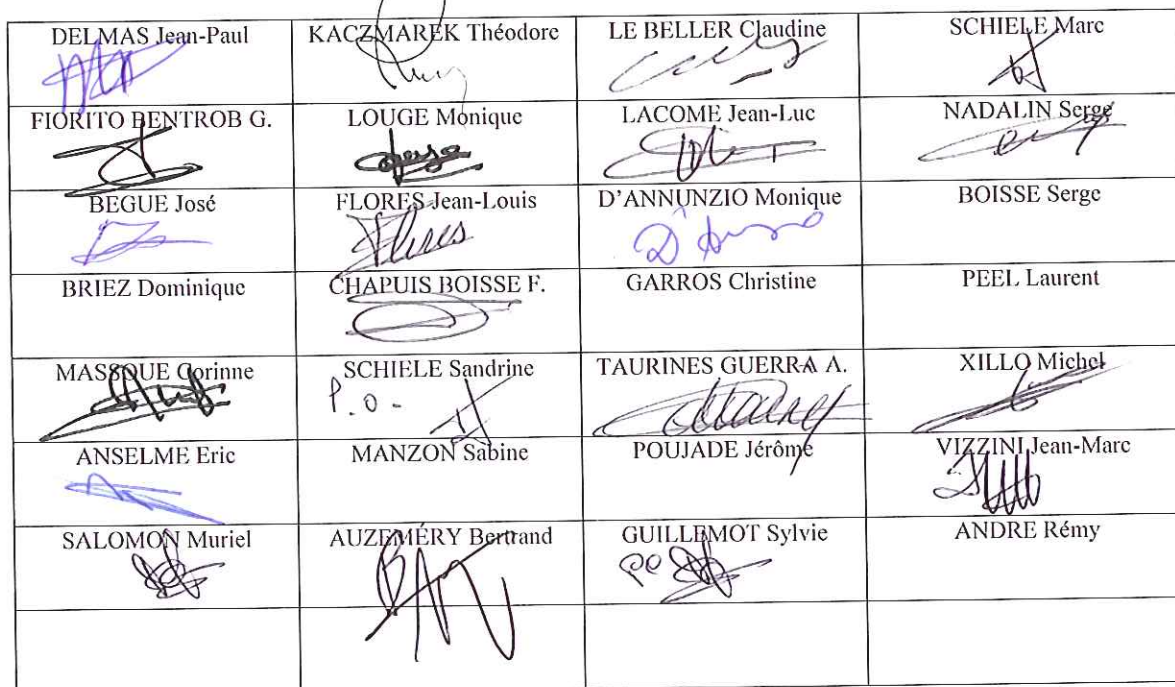 DELMAS Jean-Paul
KACZMAREK Théodore
LE BELLER Claudine
SCHIELE Marc
FIORITO BENTROB G.
LOUGE Monique
LACOME Jean-Luc
NADALIN Serge
BEGUE José
FLORES Jean-Louis
Flores
D'ANNUNZIO Monique
BOISSE Serge
BRIEZ Dominique
CHAPUIS BOISSE F.
GARROS Christine
PEEL Laurent
MASSOUE Corinne
SCHIELE Sandrine
P.o-
TAURINES GUERRA A.
XILLO Michel
ANSELME Eric
MANZON Sabine
POUJADE Jérôme
VIZZINI Jean-Marc
SALOMON Muriel
AUZEMÉRY Bertrand
GUILLEMOT Sylvie
po
ANDRE Rémy